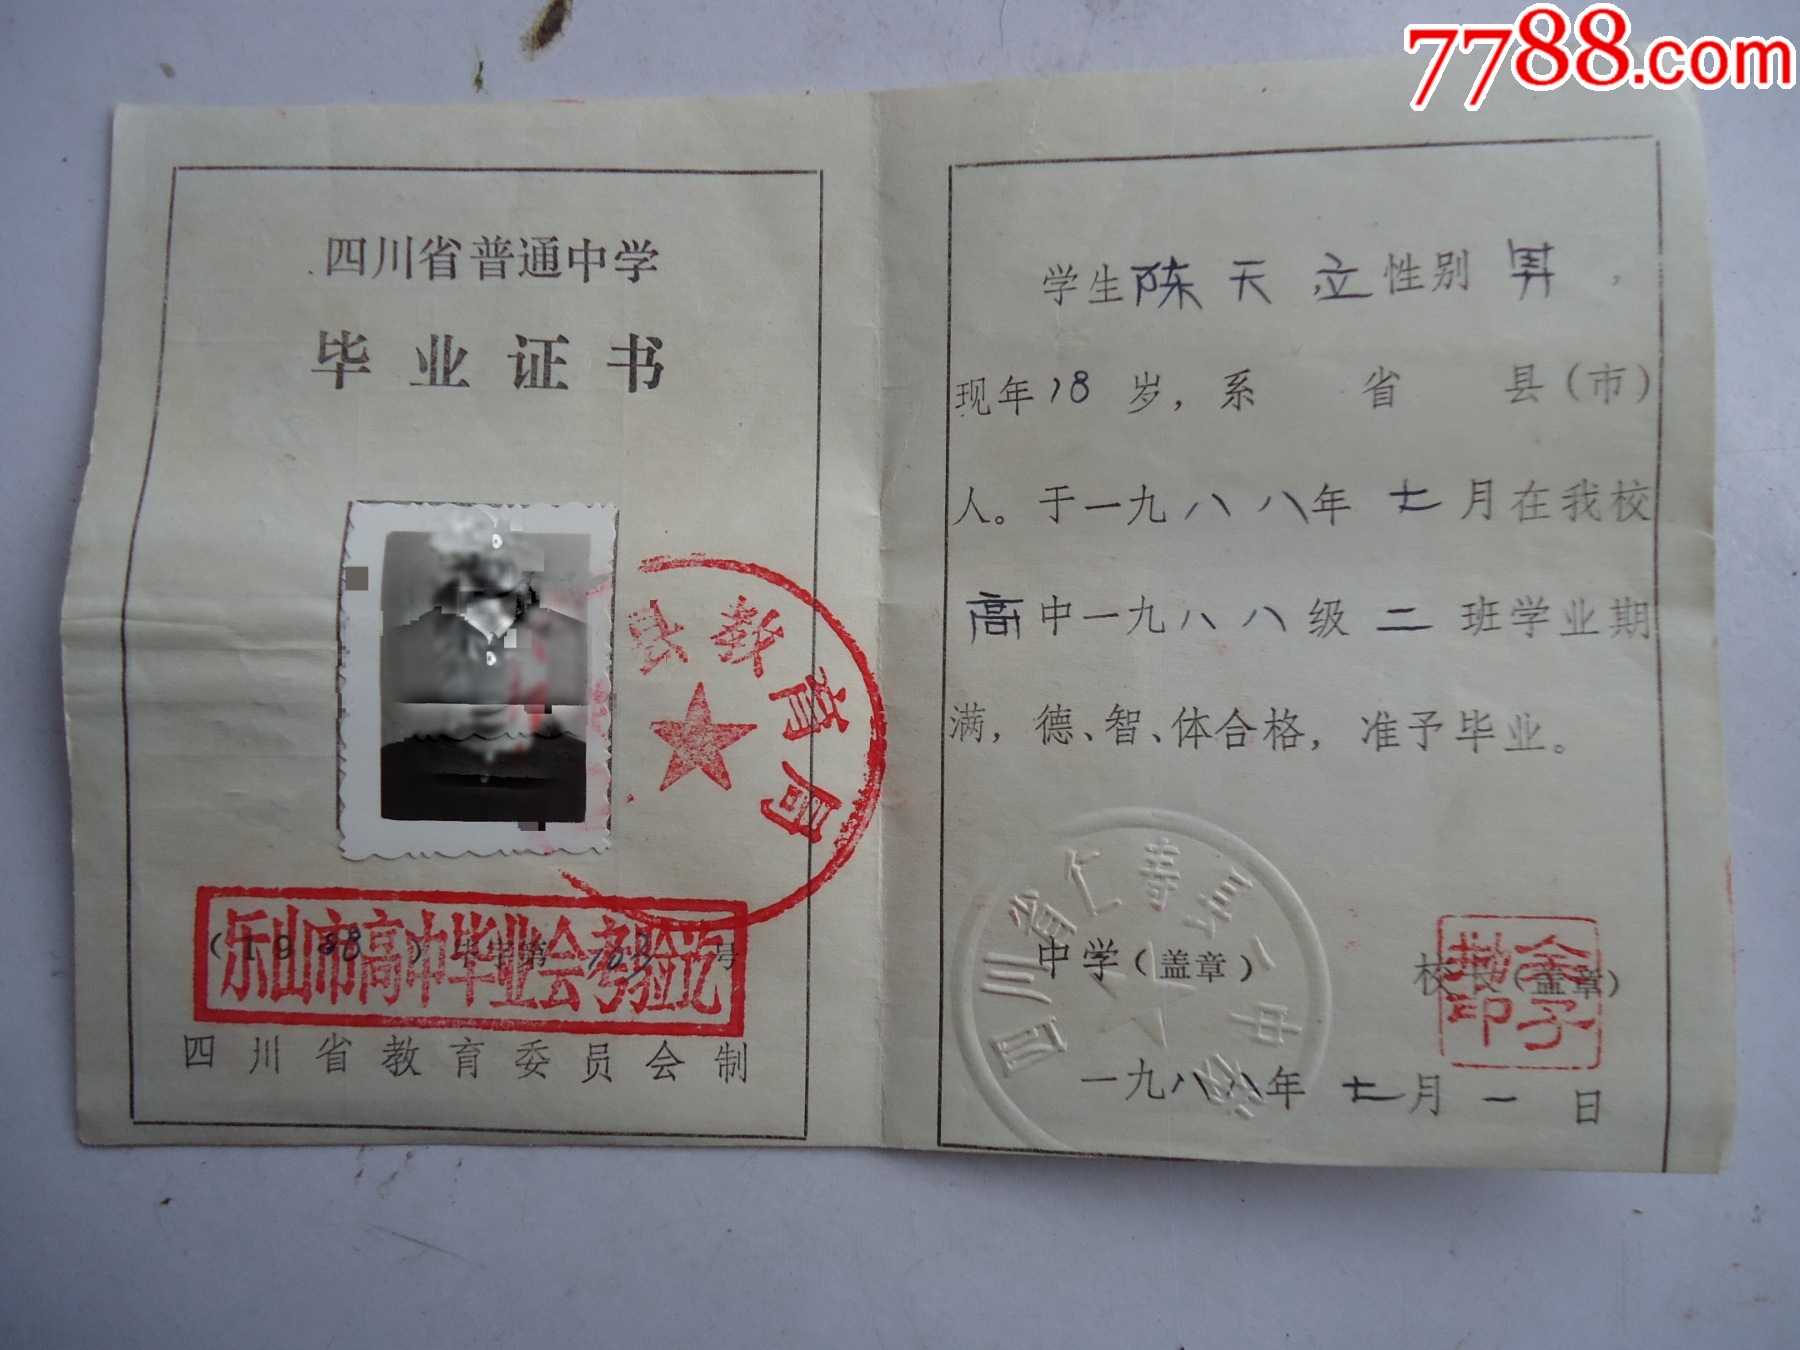 7788.com
四川省普通中学
毕业证书
县教育局
乐山市高中毕业会考验讫
(1988)毕字第103号
四川省教育委员会制
学生陈天立性别男,
现年18岁,系 省 县(市)
人。于一九八八年七月在我校
高中一九八八级二班学业期
满,德、智、体合格,准予毕业。
四川省仁寿县
中学(盖章) 校长(盖章)
一九八八年七月一日